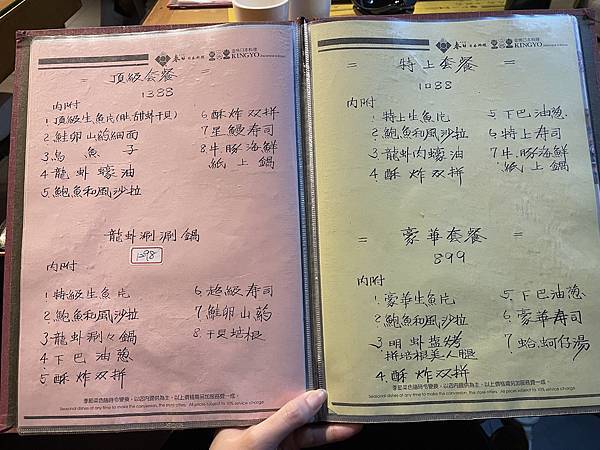 春野 日本料理 金魚日本料理 KINGYO
= 頂級套餐 =
1388
內附
1 頂級生魚片(肚.甜蚌干貝)
2 鮭卵山葯細面
3 烏魚子
4 龍蚌蠔油
5 鮑魚和風沙拉
6 酥炸双拼
7 星鰻寿司
8 牛.豚海鮮
紙上鍋
龍蚌涮涮鍋
1298
內附
1 特級生魚片
2 鮑魚和風沙拉
3 龍蚌涮々鍋
4 下巴油蔥
5 酥炸双拼
6 超級寿司
7 鮭卵山葯
8 干貝培根
季節菜色隨時令變換，以店內提供為主，以上價格需另加服務費一成。
Seasonal dishes of any time to make the conversion, the store offers. All prices subject to 10% service charge.
金魚日本料理 KINGYO
= 特上套餐 =
1088
內附
1 特上生魚片
2 鮑魚和風沙拉
3 龍蚌肉蠔油
4 酥炸双拼
5 下巴油蔥
6 特上寿司
7 牛.豚海鮮
紙上鍋
= 豪華套餐 =
899
內附
1 豪華生魚片
2 鮑魚和風沙拉
3 明蚌塩烤
拼培根美人腿
4 酥炸双拼
5 下巴油蔥
6 豪華寿司
7 蛤.蚵仔湯
季節菜色隨時令變換，以店內提供為主，以上價格需另加服務費一成。
Seasonal dishes of any time to make the conversion, the store offers. All prices subject to 10% service charge.